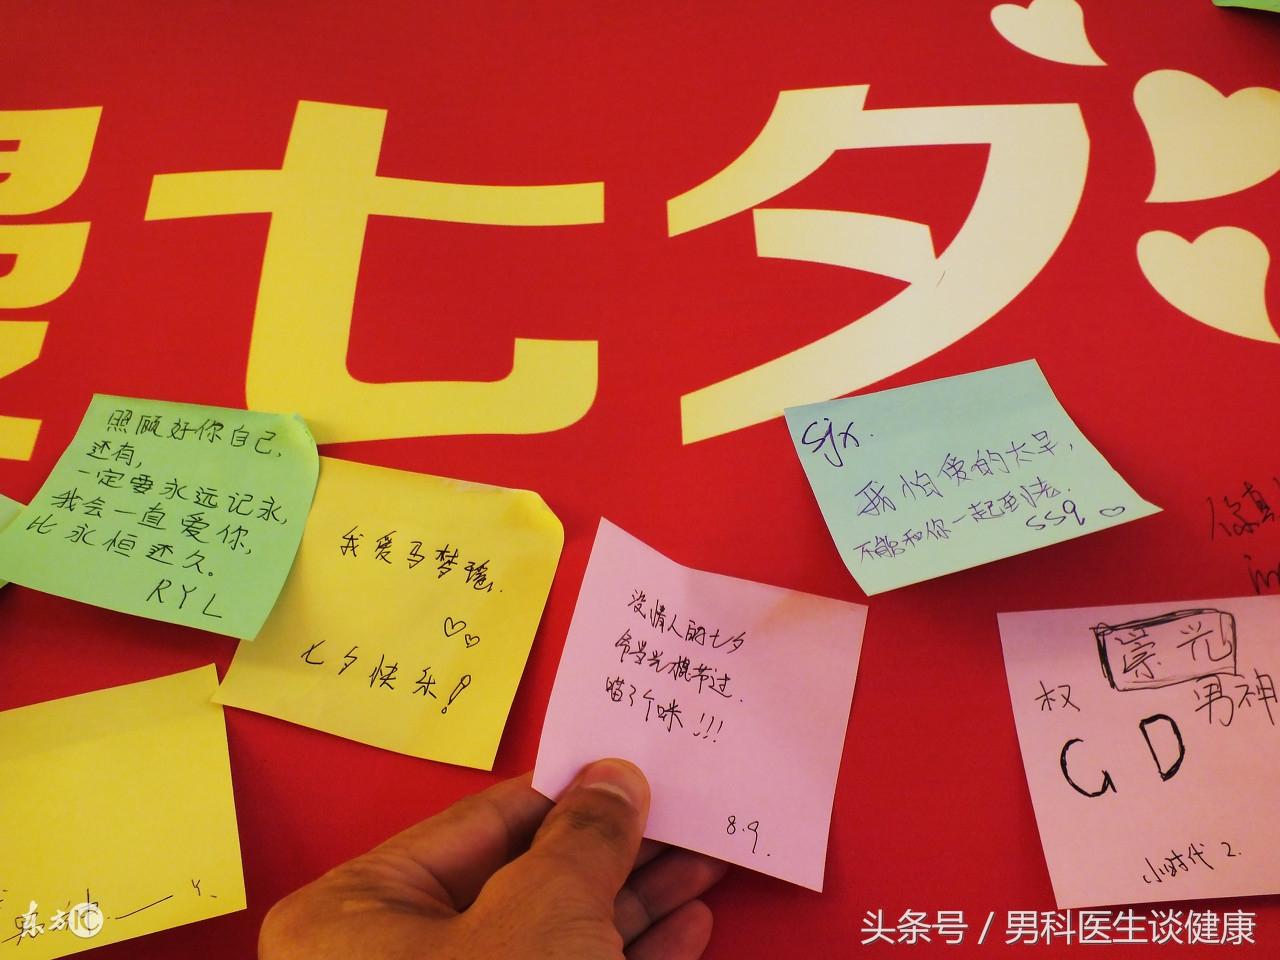 七夕
照顾好你自己,
还有,
一定要永远记永,
我会一直爱你,
比永恒还久。
RYL
我爱马梦琬.
七夕快乐!
没情人的七夕
希望光棍节过.
喵了个咪!!!
8.9.
sjx.
我怕爱的太早,
不能和你一起到老.
SSq
崇光
权
男神
GD
小时代2.
你真
东方IC
头条号 / 男科医生谈健康